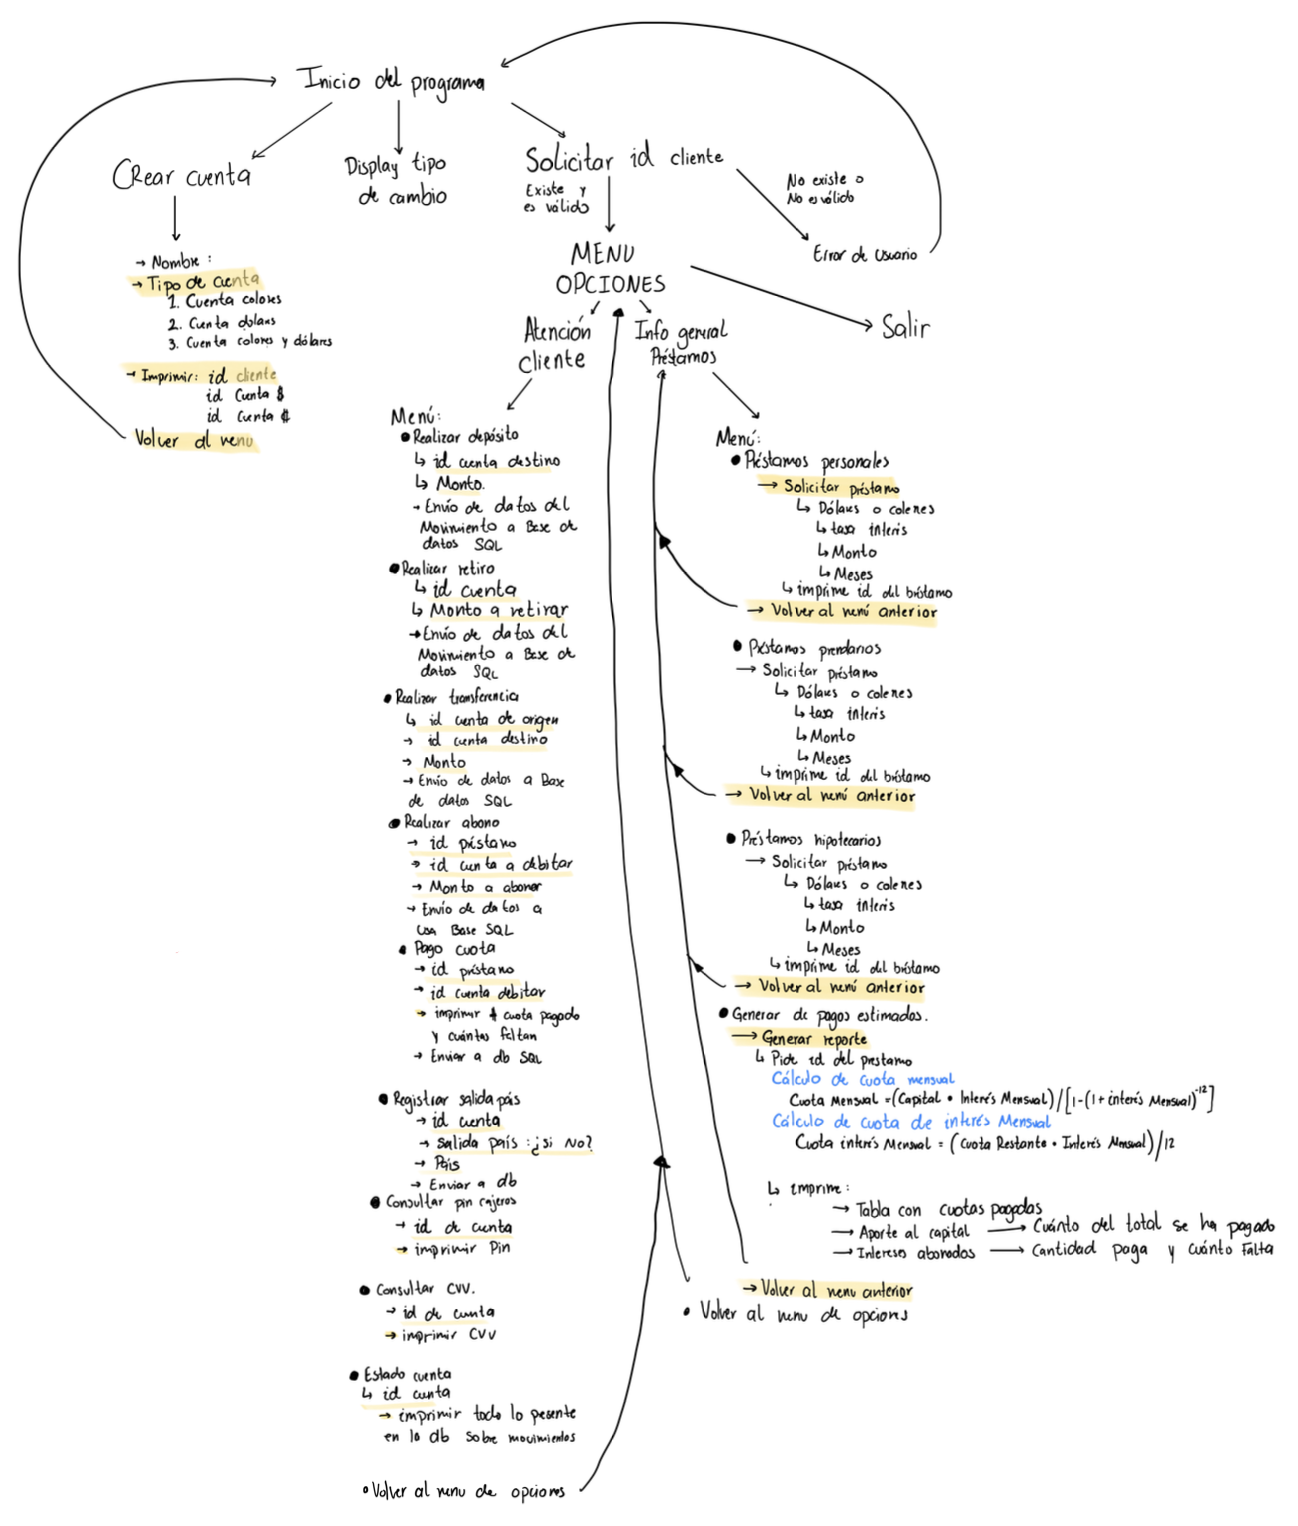 Inicio del programa
Crear cuenta
Display tipo
de cambio
Solicitar id cliente
Existe y
es válido
No existe o
No es válido
Error de Usuario
→ Nombre :
→ Tipo de cuenta
1. Cuenta colones
2. Cuenta dólares
3. Cuenta colones y dólares
→ Imprimir: id cliente
id Cuenta $
id Cuenta ₡
Volver al menu
MENU
OPCIONES
Salir
Atención
cliente
Info general
Préstamos
Menú:
• Realizar depósito
↳ id cuenta destino
↳ Monto.
→ Envío de datos del
Movimiento a Base de
datos SQL
• Realizar retiro
↳ id cuenta
↳ Monto a retirar
→ Envío de datos del
Movimiento a Base de
datos SQL
• Realizar transferencia
↳ id cuenta de origen
→ id cuenta destino
→ Monto
→ Envío de datos a Base
de datos SQL
• Realizar abono
→ id préstamo
→ id cuenta a debitar
→ Monto a abonar
→ Envío de datos a
Base SQL
• Pago cuota
→ id préstamo
→ id cuenta debitar
→ imprimir # cuota pagado
y cuántas faltan
→ Enviar a db SQL
• Registrar salida país
→ id cuenta
→ salida país : ¿si No?
→ País
→ Enviar a db
• Consultar pin cajeros
→ id de cuenta
→ imprimir Pin
• Consultar CVV.
→ id de cuenta
→ imprimir CVV
• Estado cuenta
↳ id cuenta
→ imprimir todo lo presente
en la db sobre movimientos
• Volver al menu de opciones
Menú:
• Préstamos personales
→ Solicitar préstamo
↳ Dólares o colones
↳ tasa interés
↳ Monto
↳ Meses
↳ imprime id del préstamo
→ Volver al menú anterior
• Préstamos prendarios
→ Solicitar préstamo
↳ Dólares o colones
↳ tasa interés
↳ Monto
↳ Meses
↳ imprime id del préstamo
→ Volver al menú anterior
• Préstamos hipotecarios
→ Solicitar préstamo
↳ Dólares o colones
↳ tasa interés
↳ Monto
↳ Meses
↳ imprime id del préstamo
→ Volver al menú anterior
• Generar de pagos estimados.
→ Generar reporte
↳ Pide id del prestamo
Cálculo de cuota mensual
Cuota Mensual = (Capital • Interés Mensual) / [1-(1+interés Mensual)^-12]
Cálculo de cuota de interés Mensual
Cuota interés Mensual = (Cuota Restante • Interés Mensual)/12
↳ imprime :
→ Tabla con cuotas pagadas
→ Aporte al capital → Cuánto del total se ha pagado
→ Intereses abonados → Cantidad paga y cuánto Falta
→ Volver al menu anterior
• Volver al menu de opciones